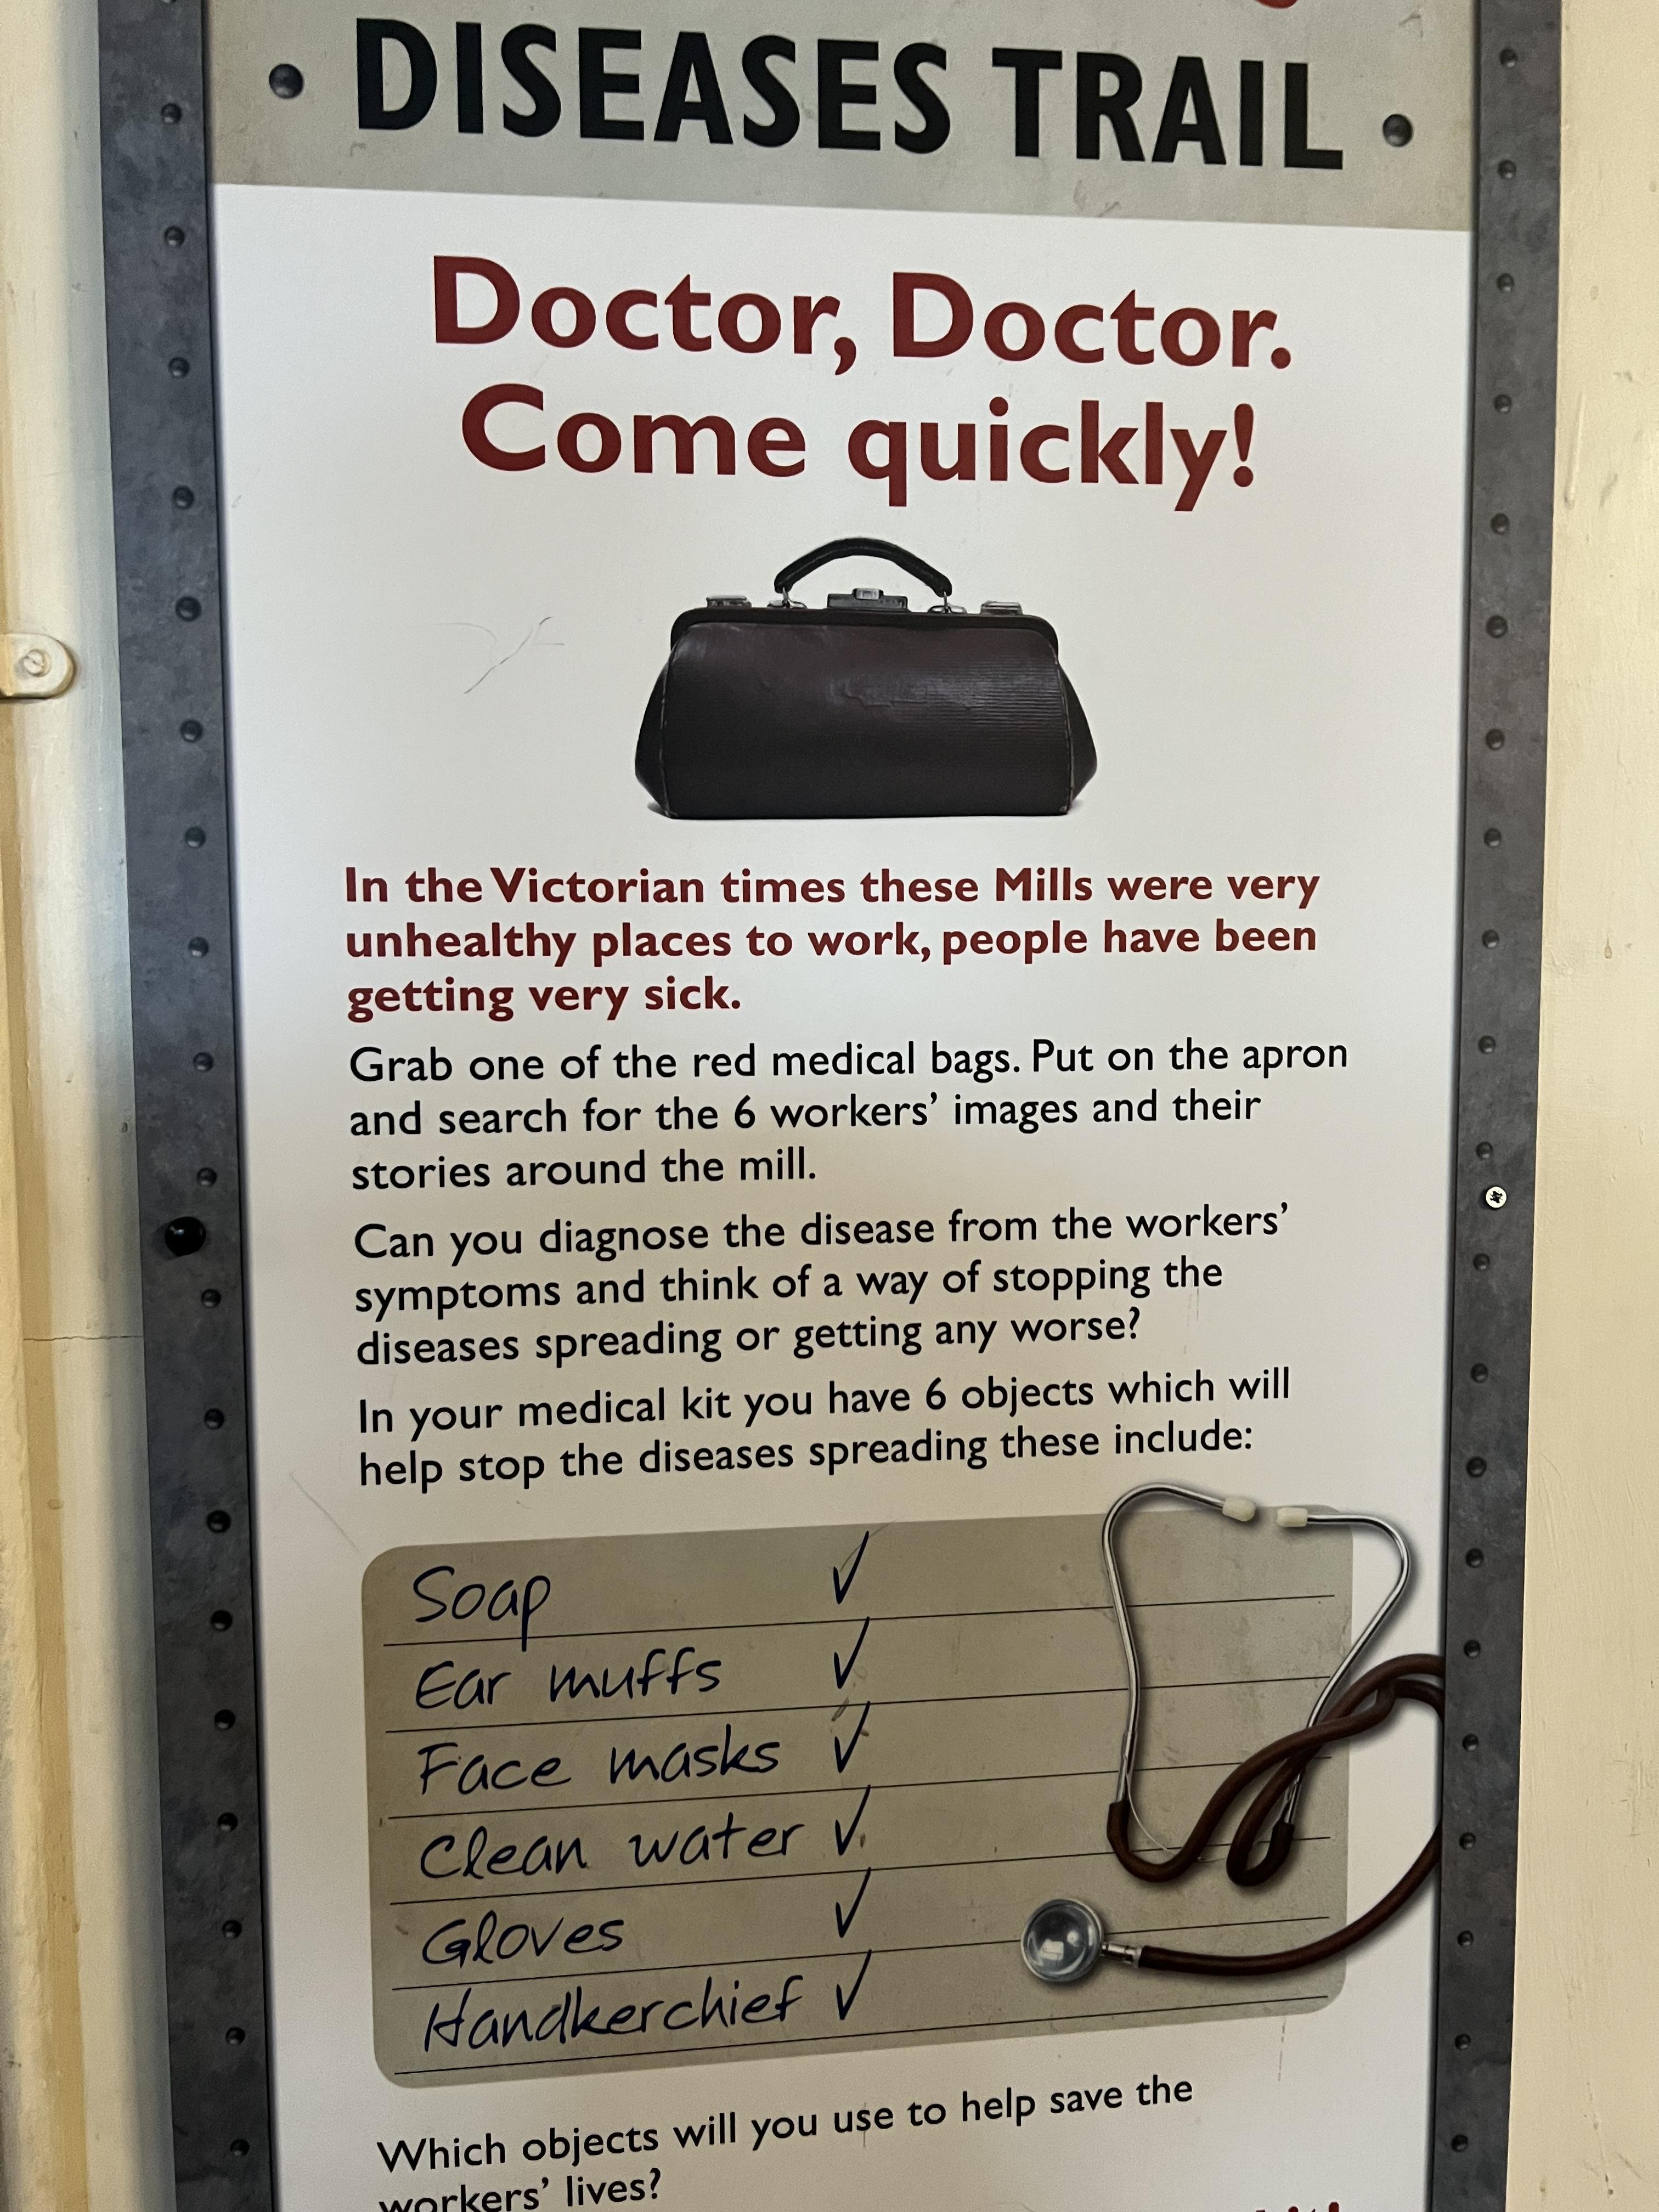 DISEASES TRAIL
Doctor, Doctor.
Come quickly!
In the Victorian times these Mills were very
unhealthy places to work, people have been
getting very sick.
Grab one of the red medical bags. Put on the apron
and search for the 6 workers' images and their
stories around the mill.
Can you diagnose the disease from the workers'
symptoms and think of a way of stopping the
diseases spreading or getting any worse?
In your medical kit you have 6 objects which will
help stop the diseases spreading these include:
Soap ✓
Ear muffs ✓
Face masks ✓
Clean water ✓
Gloves ✓
Handkerchief ✓
Which objects will you use to help save the
workers' lives?